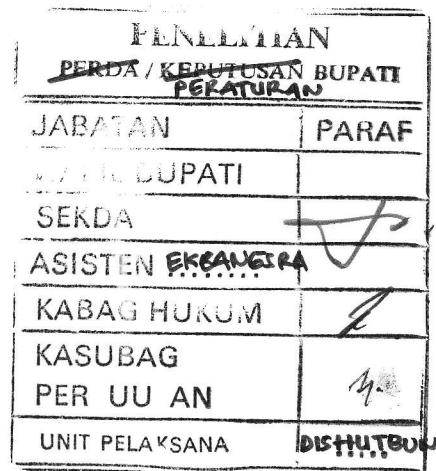 PENELITIAN
PERDA / KEPUTUSAN BUPATI
PERATURAN
JABATAN PARAF
WAKIL BUPATI
SEKDA
ASISTEN EKBANGKRA
KABAG HUKUM
KASUBAG
PER UU AN
UNIT PELAKSANA DISHUTBUN